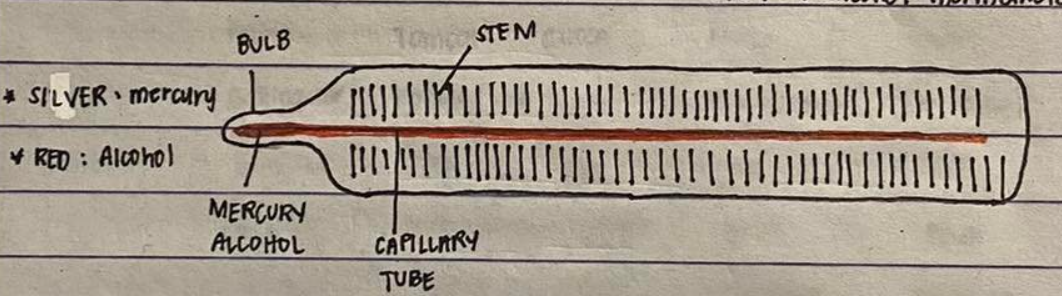 BULB
STEM
* SILVER · mercury
* RED : Alcohol
MERCURY
ALCOHOL
CAPILLARY
TUBE